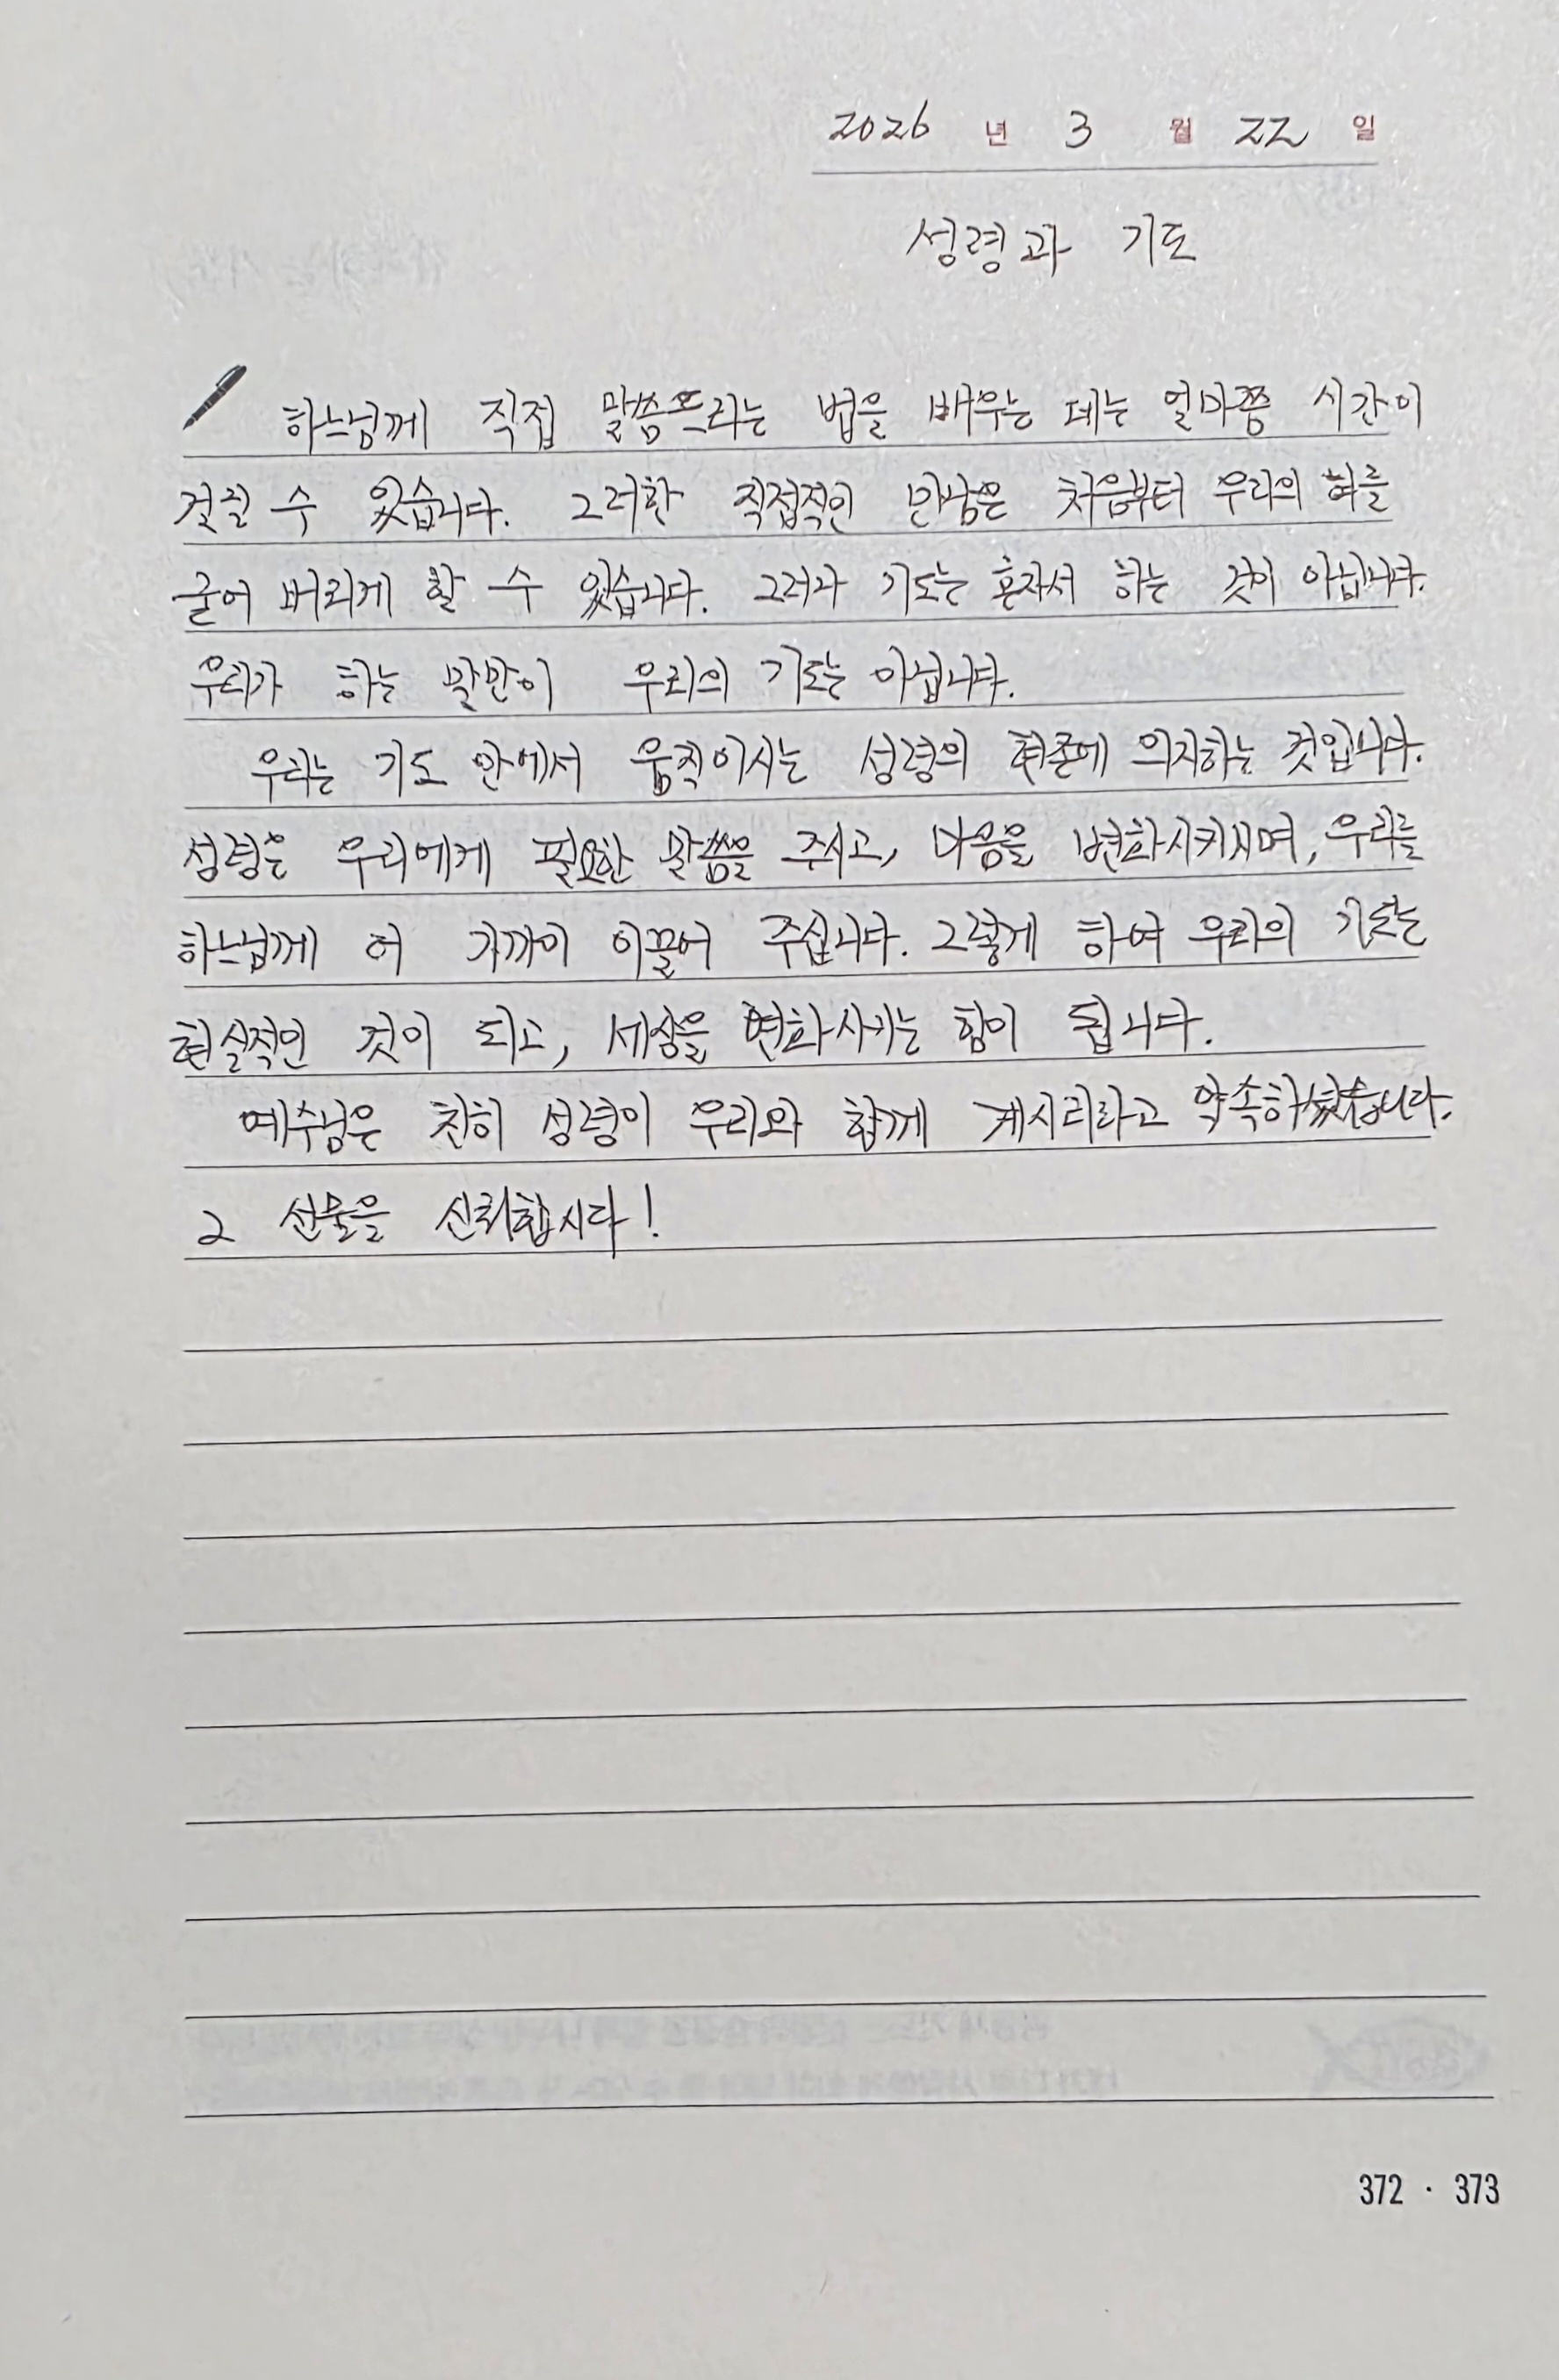 2026 년 3 월 22 일
성령과 기도
하느님께 직접 말씀드리는 법을 배우는 데는 얼마쯤 시간이
걸릴 수 있습니다. 그러한 직접적인 만남은 처음부터 우리의 혀를
굳어 버리게 할 수 있습니다. 그러나 기도는 혼자서 하는 것이 아닙니다.
우리가 하는 말만이 우리의 기도는 아닙니다.
우리는 기도 안에서 움직이시는 성령의 현존에 의지하는 것입니다.
성령은 우리에게 필요한 말씀을 주시고, 마음을 변화시키시며, 우리를
하느님께 더 가까이 이끌어 주십니다. 그렇게 하여 우리의 기도는
현실적인 것이 되고, 세상을 변화시키는 힘이 됩니다.
예수님은 친히 성령이 우리와 함께 계시리라고 약속하셨습니다.
그 선물을 신뢰합시다!
372 · 373